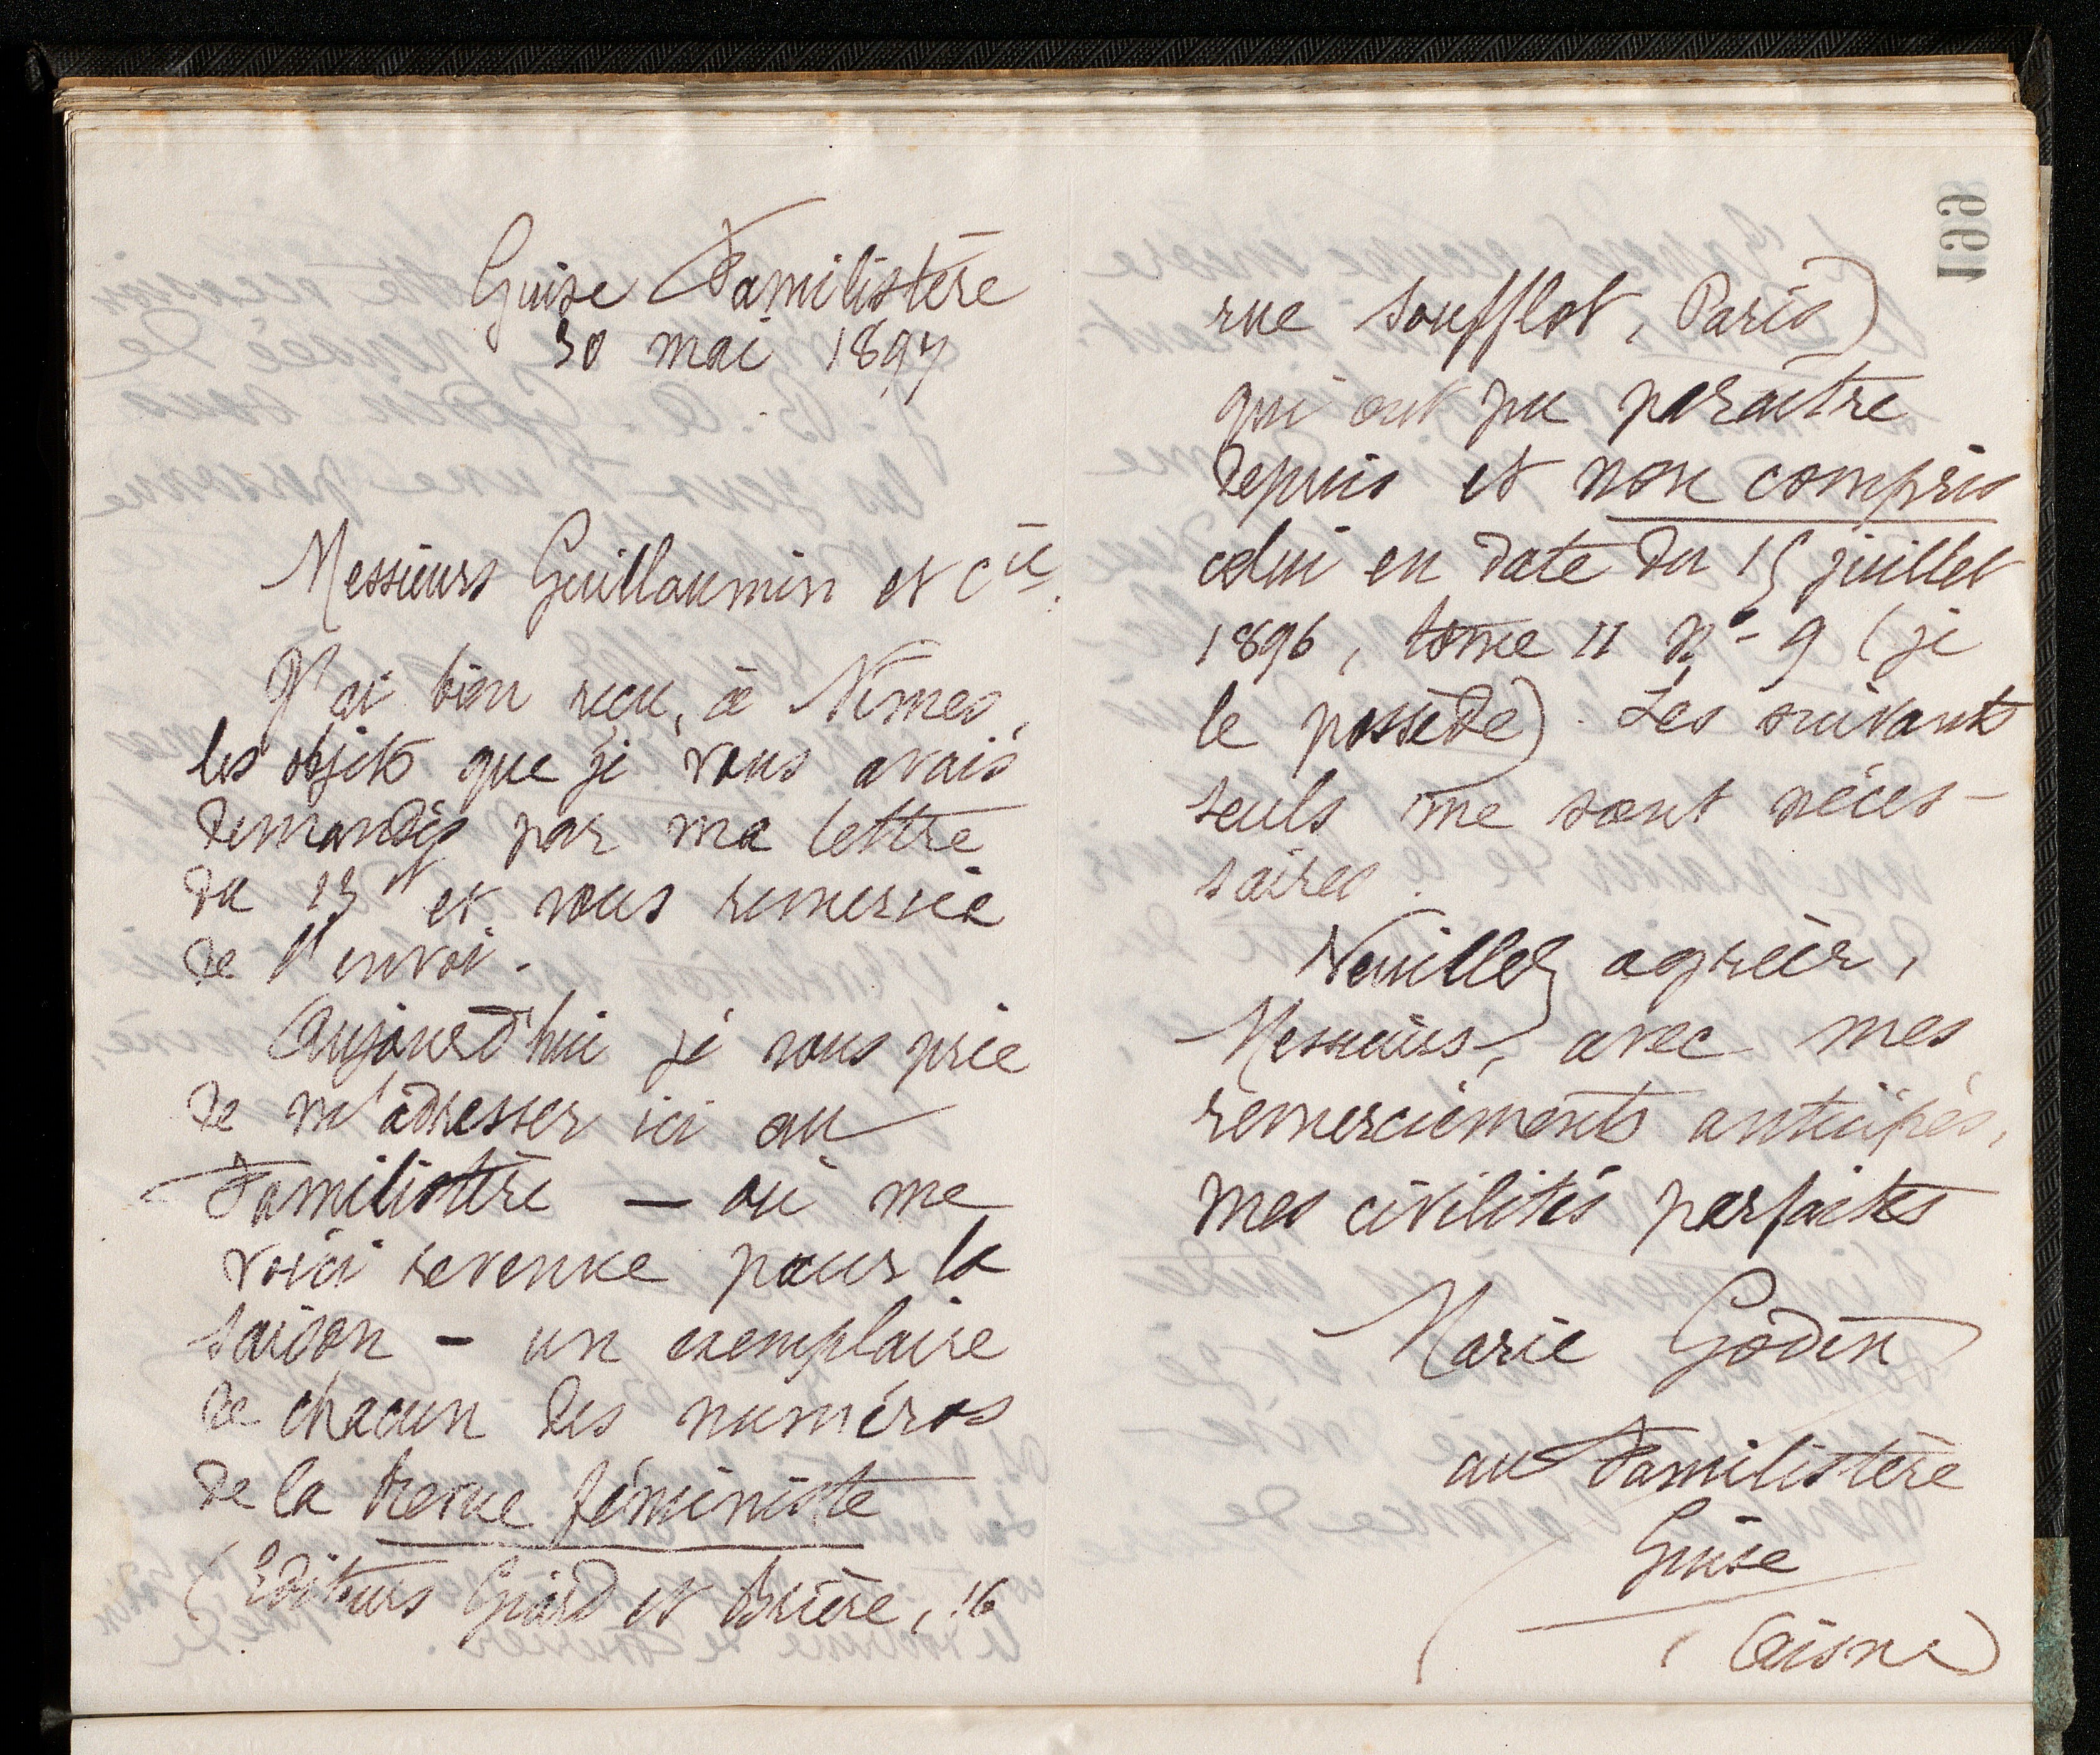 Guise Familistère
30 mai 1897
Messieurs Guillaumin et Cie.
J'ai bien reçu, à Nîmes,
les objets que je vous avais
demandés par ma lettre
du 13 et et vous remercie
de l'envoi.
Aujourd'hui je vous prie
de m'adresser ici au
Familistère — où me
voici revenue pour la
saison — un exemplaire
de chacun des numéros
de la Revue féministe
(Editeurs Giard et Brière, 16
rue Soufflot, Paris)
qui ont pu paraître
depuis et non compris
celui en date du 15 juillet
1896, tome II No - 9 (je
le possède). Les suivants
seuls me sont néces-
saires.
Veuillez agréer,
Messieurs, avec mes
remerciements anticipés,
mes civilités parfaites
Marie Godin
au Familistère
Guise
(Aisne)